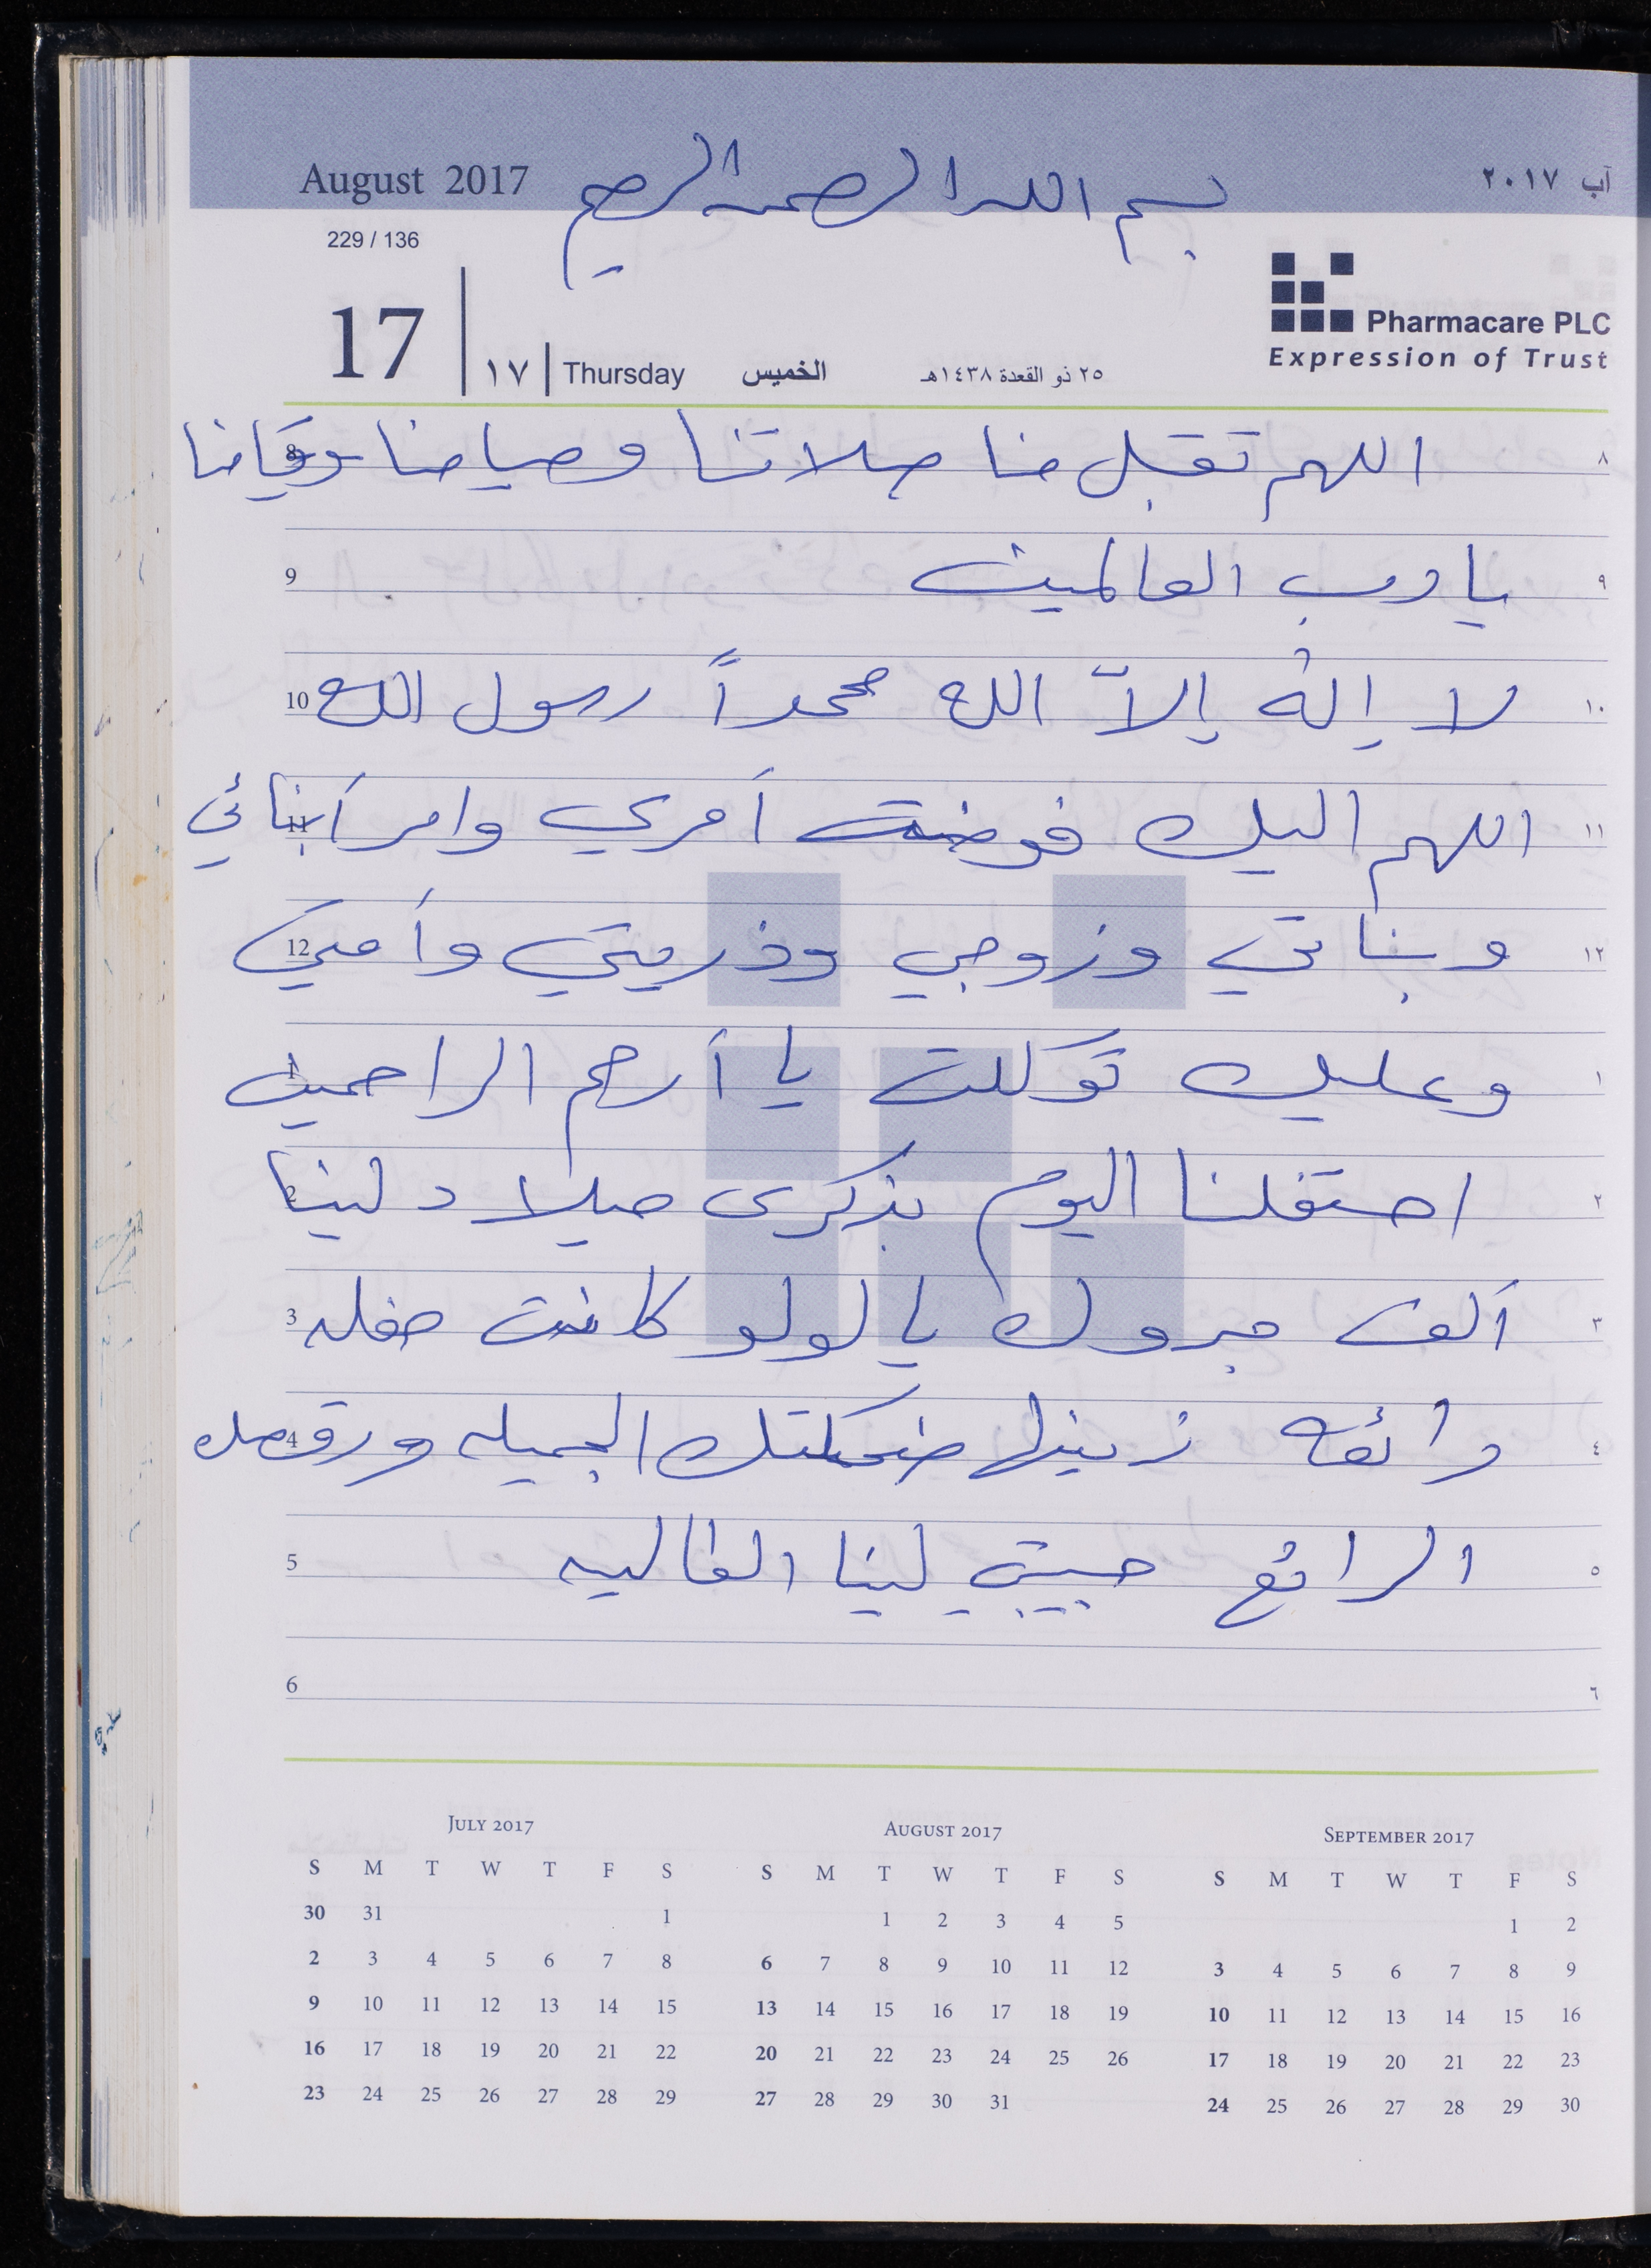 August 2017
بسم الله الرحمن الرحيم
آب ٢٠١٧
229 / 136
17 | ١٧ | Thursday الخميس ٢٥ ذو القعدة ١٤٣٨هـ
Pharmacare PLC
Expression of Trust
8 اللهم تقبل منا صلاتنا وصيامنا وقيامنا ٨
9 يا رب العالمين ٩
10 لا إله إلاّ الله محمداً رسول الله ١٠
11 اللهم اليك فوضت أمري وامر أبنائي ١١
12 وبناتي وزوجي وذريتي وأمتي ١٢
1 وعليك توكلت يا أرحم الراحمين ١
2 احتفلنا اليوم بذكرى ميلاد لينا ٢
3 ألف مبروك يا لولو كانت حفله ٣
4 رائعه زينها ضحكتك الجميله ورقصك ٤
5 الرائع حبيبتي لينا الغاليه ٥
6 ٦
July 2017
S M T W T F S
30 31 1
2 3 4 5 6 7 8
9 10 11 12 13 14 15
16 17 18 19 20 21 22
23 24 25 26 27 28 29
August 2017
S M T W T F S
1 2 3 4 5
6 7 8 9 10 11 12
13 14 15 16 17 18 19
20 21 22 23 24 25 26
27 28 29 30 31
September 2017
S M T W T F S
1 2
3 4 5 6 7 8 9
10 11 12 13 14 15 16
17 18 19 20 21 22 23
24 25 26 27 28 29 30